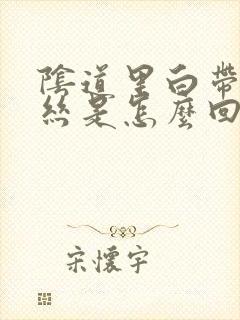 陰道里白帶
絲是怎麼回
宋懷宇